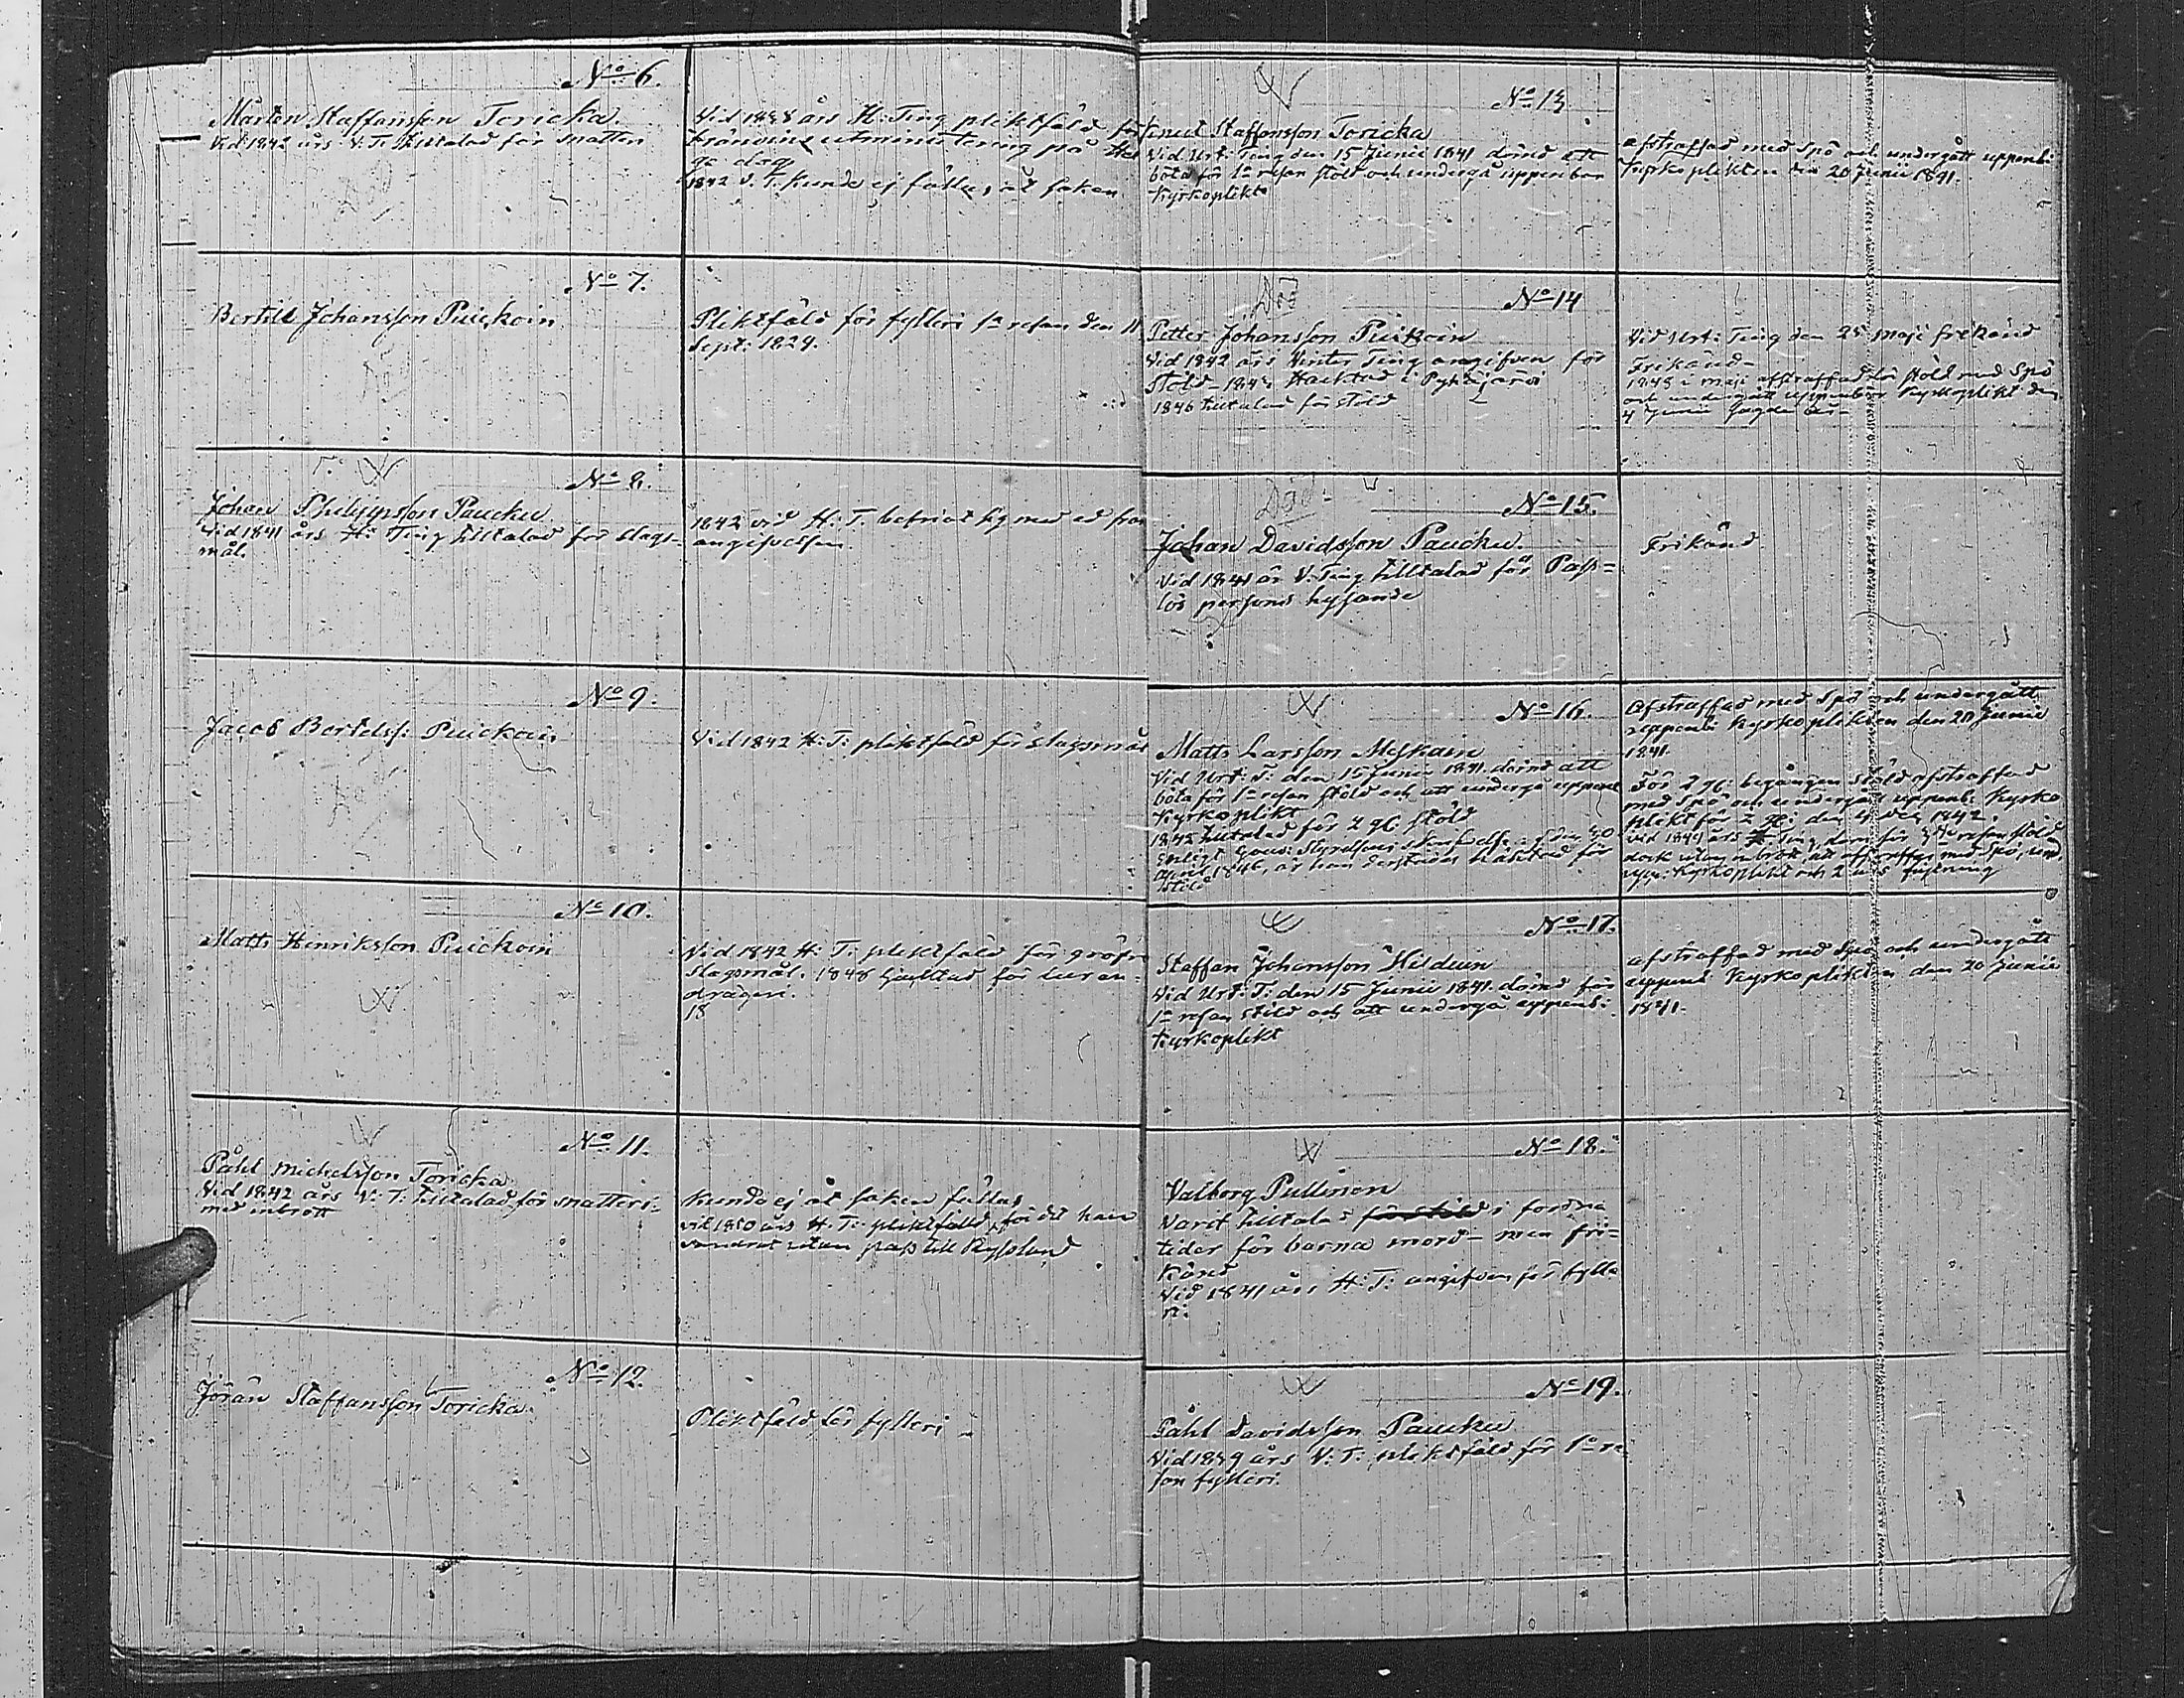 No 6.
Mårten Staffansson Toricka.
Vid 1842 års V. T. tilltalad för snatteri
Död
Vid 1838 års H: Ting pliktfäld för
bränvins utminutering på Hel
ge dag
1842 V. T. kunde ej fällas åt saken
No 7.
Bertill Johansson Puickoin
Död
Pliktfäld för fylleri 1a resan den 11
Sept: 1829.
No 8.
Johan Philippsson Paucku
Vid 1841 års H: Ting tilltalad för slags-
mål.
1842 vid H: T. befriat sig med ed från
angifvelsen.
No 9.
Jacob Bertelss: Puickoin
Död
Vid 1842 H: T: pliktfäld för slagsmål
No 10.
Matts Henriksson Puickoin
Vid 1842 H: T: pliktfäld för gröfre
slagsmål. 1848 häktad för luran-
drägeri.
18
No 11.
Påhl Michelsson Toricka
Vid 1842 års V: T: tilltalad för snatteri
med inbrott
Kunde ej åt saken fällas
vid 1850 års H. T: pliktfälld, för det han
vandrat utan pass till Ryssland
No 12.
Jöran Staffansson Toricka
Pliktfäld för fylleri
No 13
Knut Staffansson Toricka
Vid Urt: Ting den 15 Junii 1841 dömd att
böta för 1a resan stöld och undergå uppenbar
Kyrkoplikt
afstraffad med spö och undergått uppenb:
Kyrkoplikten den 20 Junii 1841.
No 14
Död
Petter Johansson Puickoin
Vid 1842 års Vinter Ting angifven för
stöld 1845 Häcktad i Pyhäjärvi
1846 tilltalad för stöld
Vid Urt: Ting den 25 maji frikänd
Frikänd-
1845 i maji afstraffad för stöld med Spö
och undergått uppenbar Kyrkoplikt den
4 Junii sagde år-
No 15.
Död
Johan Davidsson Paucku.
Vid 1841 år V. Ting tilltalad för Pass=
lös persons hysande
Frikänd
No 16.
Matts Larsson Meskain
Vid Urt: T: den 15 Junii 1841. dömd att
böta för 1a resan stöld och att undergå uppenb
Kyrkoplikt
1842 tilltalad för 2 gg: stöld
Enligt Gouv: Styrelsens af den 30
April 1846, är han derstädes häktad för
stöld
Afstraffad med Spö och undergått
uppenb: Kyrkoplikten den 20 Junii
1841.
För 2 gg: begången stöld afstraffad
med spö och undergått uppenb: Kyrko
plikt för 2 gg: den 4 Dec 1842.
vid 1844 års H. Ting, dömd för 3dje resan stöld
dock utan inbrott, att afstraffas med Spö, und.
upp: Kyrkoplikt och 2 års fästning
No 17.
Staffan Johansson Hilduin
Vid Urt: T: den 15 Junii 1841. dömd för
1a resan stöld och att undergå uppenb:
Kyrkoplikt
afstraffad med Spö och undergått
uppenb Kyrkoplikten den 20 Junii
1841.
No 18.
Valborg Pullinen
Varit tilltalad för stöld i fordna
tider för barna mord- men fri=
känd
Vid 1841 års H: T: angifven för fylle
ri:
No 19.
Påhl Davidsson Paucku
Vid 1849 års V: T: pliktfäld för 1a re
san fylleri.